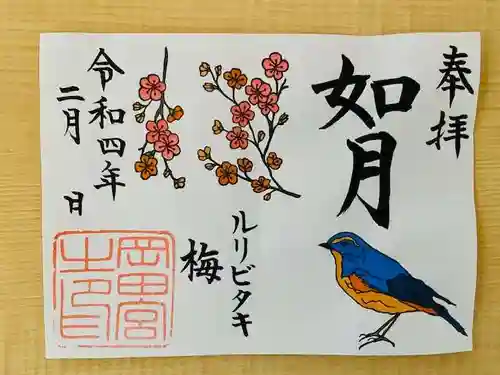 奉拝
如月
ルリビタキ
梅
令和四年
二月 日
岡田宮